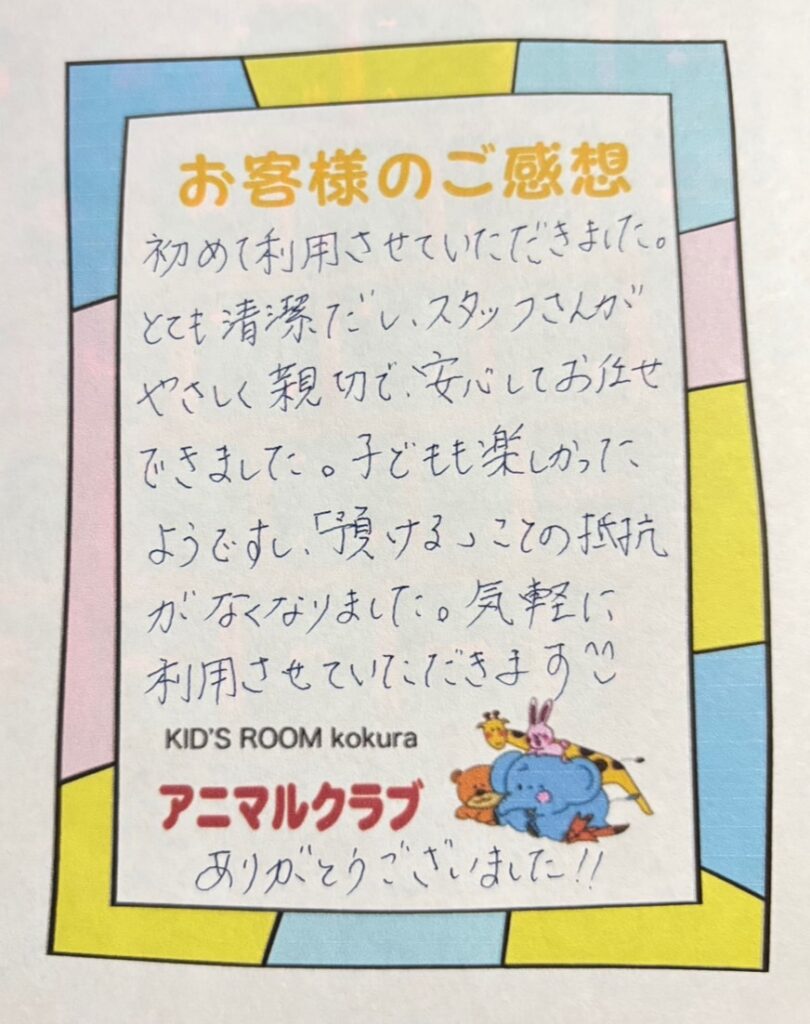 お客様のご感想
初めて利用させていただきました。
とても清潔だし、スタッフさんが
やさしく親切で、安心してお任せ
できました。子どもも楽しかった
ようですし、「預ける」ことの抵抗
がなくなりました。気軽に
利用させていただきます
KID'S ROOM kokura
アニマルクラブ
ありがとうございました!!